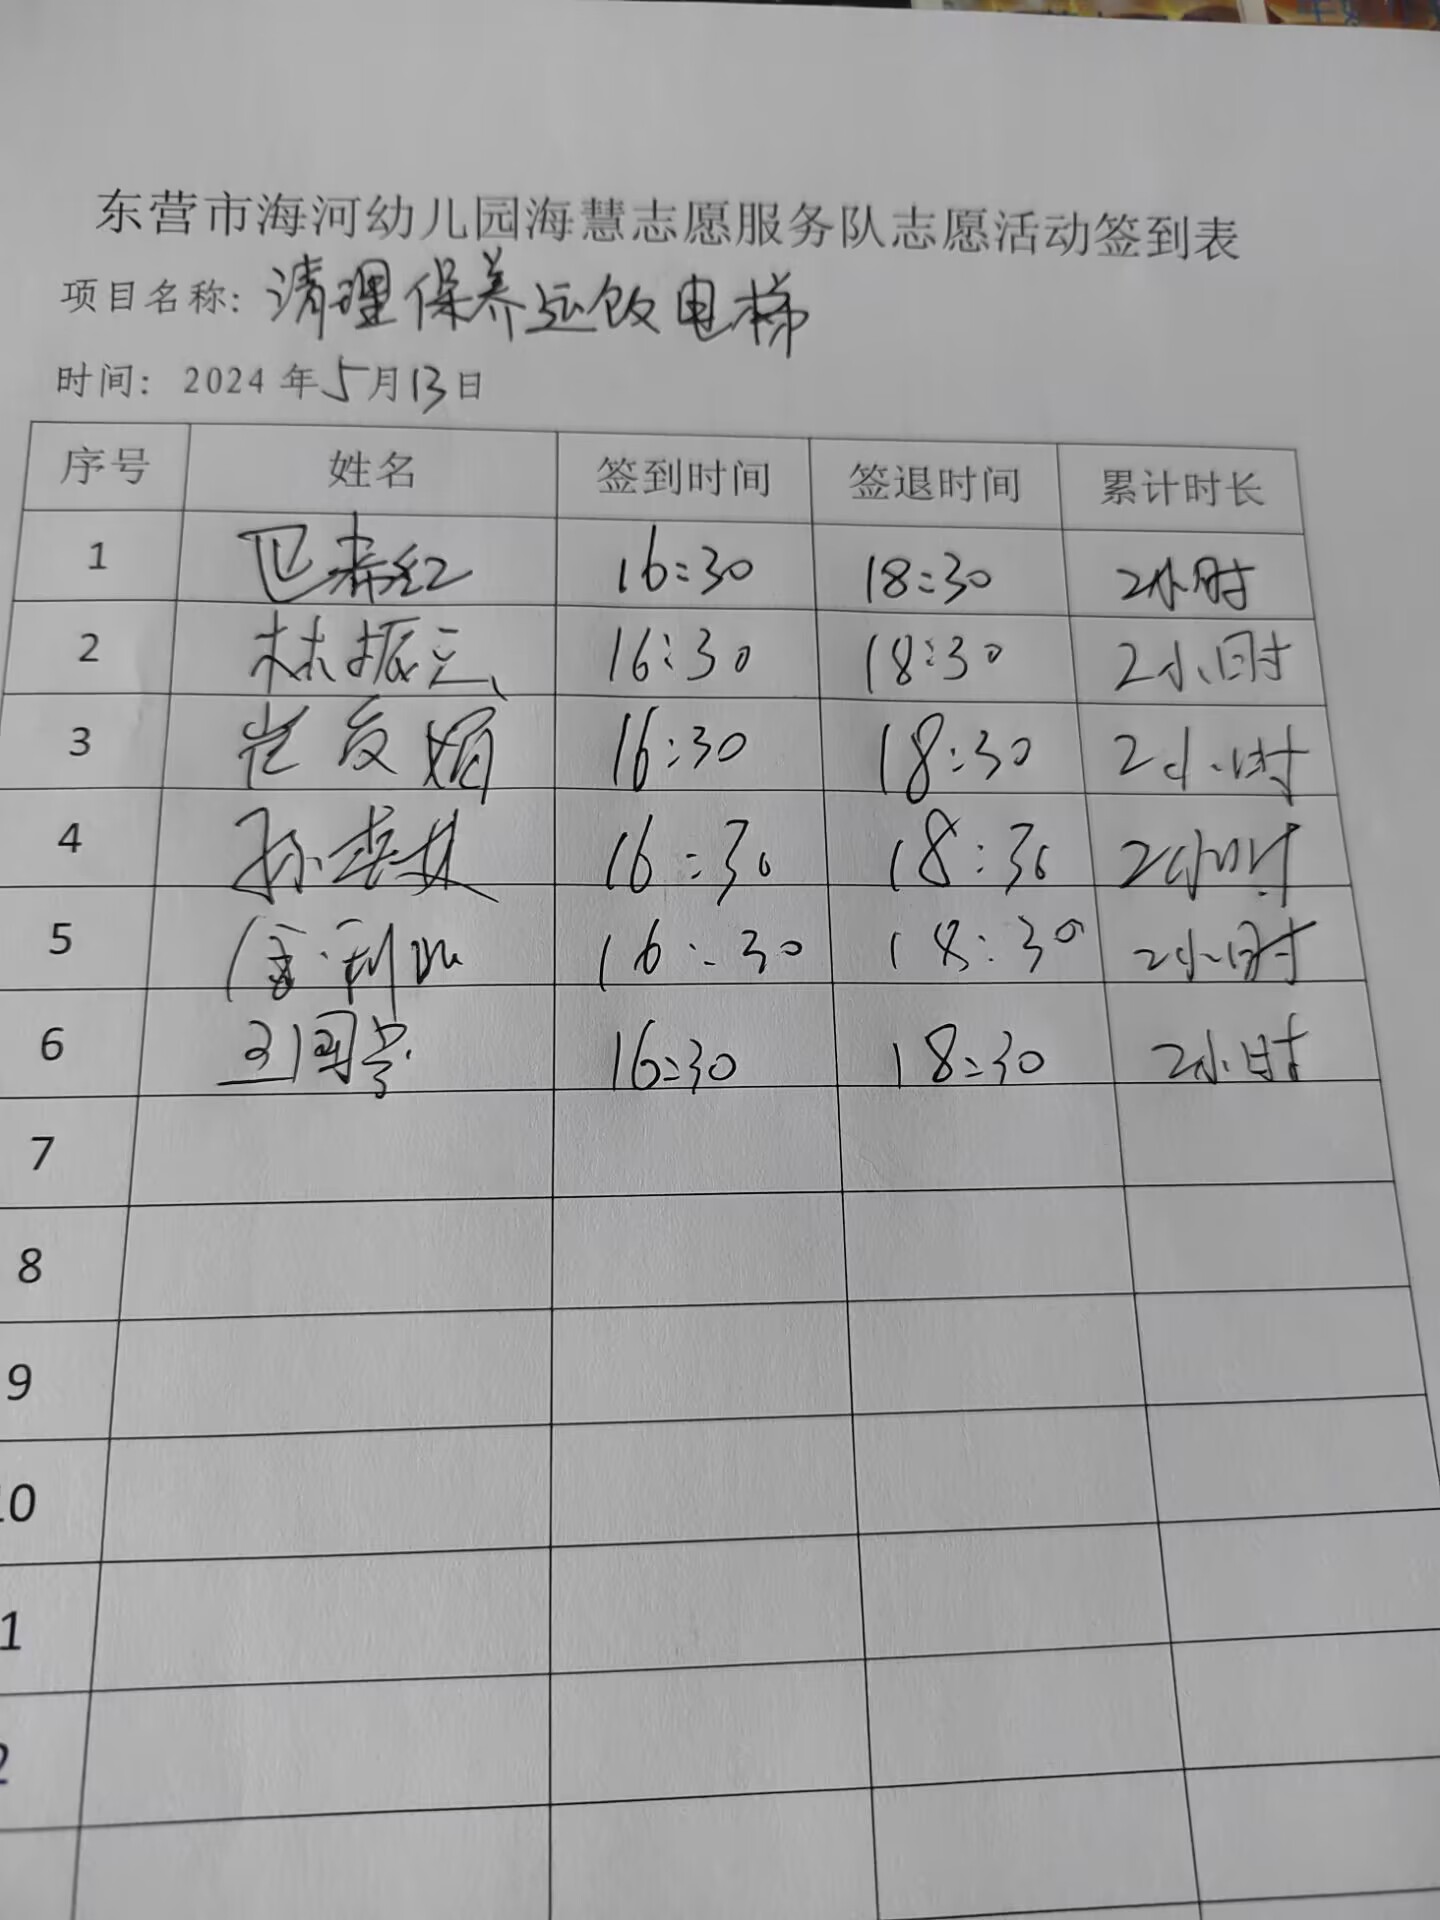 东营市海河幼儿园海慧志愿服务队志愿活动签到表
项目名称：清理保养运饭电梯
时间：2024年5月13日
序号 姓名 签到时间 签退时间 累计时长
1 16:30 18:30 2小时
2 林振 16:30 18:30 2小时
3 16:30 18:30 2小时
4 孙 16:30 18:30 2小时
5 16:30 18:30 2小时
6 16:30 18:30 2小时
7
8
9
10
1
2